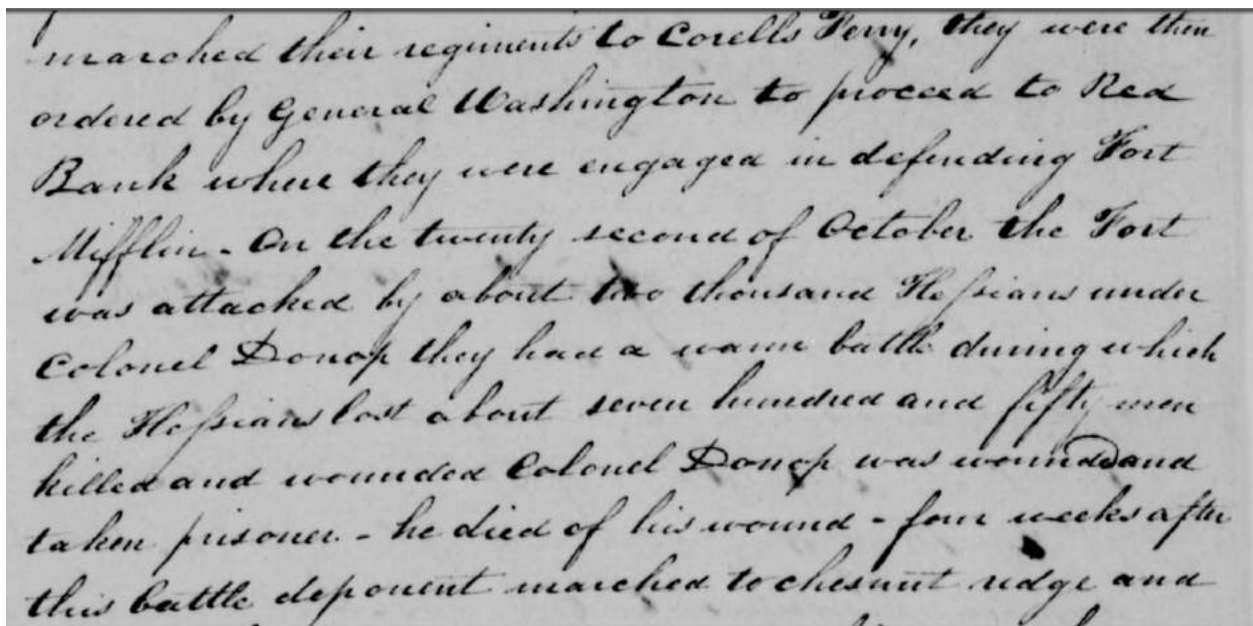 marched their regiments to Corells Ferry, they were then
ordered by General Washington to proceed to Red
Bank where they were engaged in defending Fort
Mifflin - On the twenty second of October the Fort
was attacked by about two thousand Hessians under
Colonel Donop they had a warm battle during which
the Hessians lost about seven hundred and fifty men
killed and wounded Colonel Donop was wounded and
taken prisoner - he died of his wound - four weeks after
this battle deponent marched to chesnut ridge and